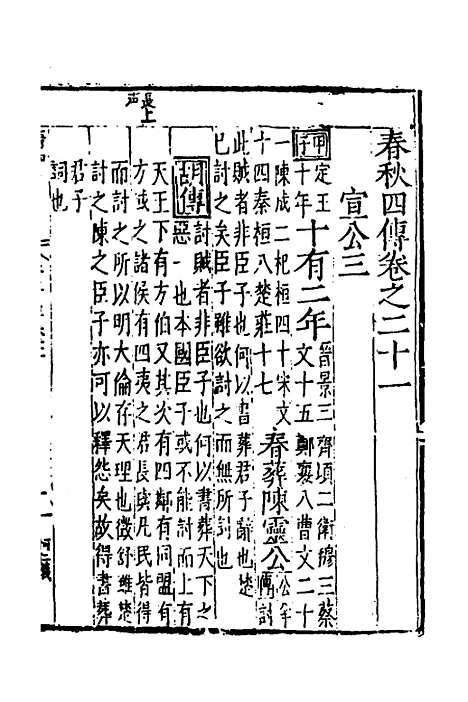 春秋四傳卷之二十一
宣公三
甲子定王十年十有二年晉景三齊頃二衛穆三蔡文十五鄭襄八曹文二十
一陳成二杞桓四十宋文十四秦桓八楚莊十七春葬陳靈公公羊傳討
此賊者非臣子也何以書葬君子辭也楚
已討之矣臣子雖欲討之而無所討也
胡傳討賊者非臣子也何以書葬天下之
惡一也本國臣子或不能討而上有
天王下有方伯又其次有四鄰有同盟有
方域之諸侯有四夷之君長與凡民皆得
而討之所以明大倫存天理也徵舒雖楚
討之陳之臣子亦可以釋怨矣故得書葬
君子
詞也
長上声